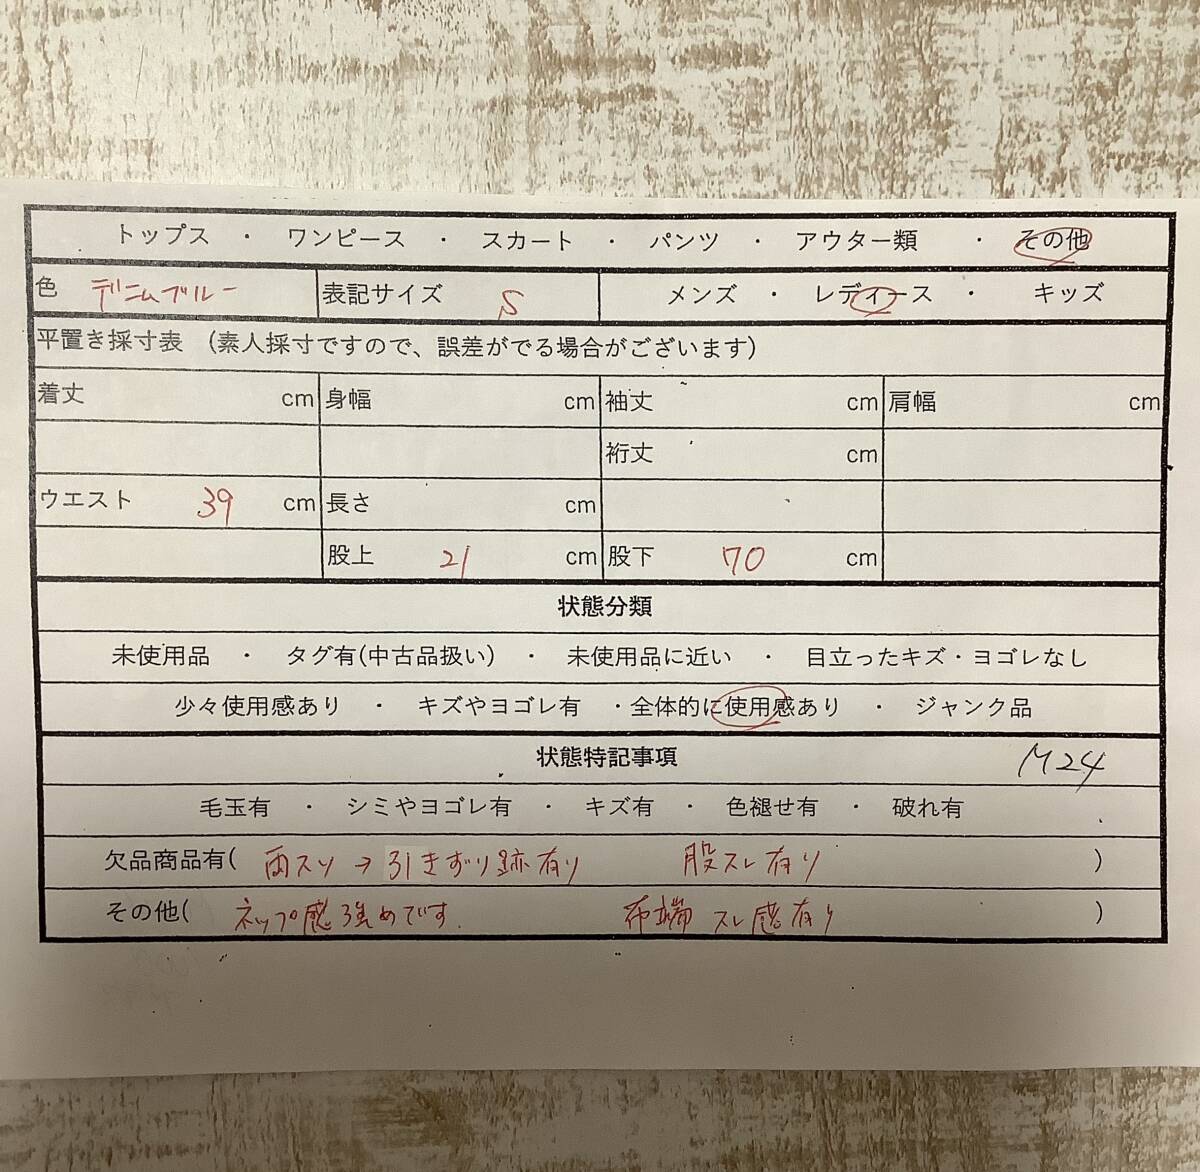 トップス ・ ワンピース ・ スカート ・ パンツ ・ アウター類 ・ その他
色 デニムブルー 表記サイズ S メンズ ・ レディース ・ キッズ
平置き採寸表 (素人採寸ですので、誤差がでる場合がございます)
着丈 cm 身幅 cm 袖丈 cm 肩幅 cm
裄丈 cm
ウエスト 39 cm 長さ cm
股上 21 cm 股下 70 cm
状態分類
未使用品 ・ タグ有(中古品扱い) ・ 未使用品に近い ・ 目立ったキズ・ヨゴレなし
少々使用感あり ・ キズやヨゴレ有 ・全体的に使用感あり ・ ジャンク品
状態特記事項 M24
毛玉有 ・ シミやヨゴレ有 ・ キズ有 ・ 色褪せ有 ・ 破れ有
欠品商品有( 両スソ→引きずり跡有り 股スレ有り )
その他( ネップ感強めです. 布端 スレ感有り )